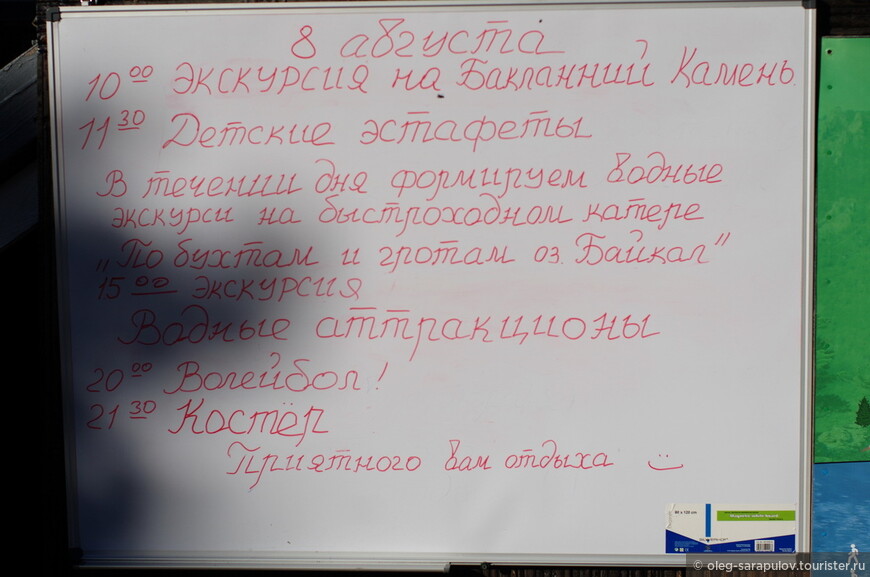 8 августа
10 00 Экскурсия на Бакланний Камень.
11 30 Детские эстафеты
В течении дня формируем водные
экскурси на быстроходном катере
"По бухтам и гротам оз. Байкал"
15 00 Экскурсия
Водные аттракционы
20 00 Волейбол!
21 30 Костёр
Приятного вам отдыха
© oleg-sarapulov.tourister.ru